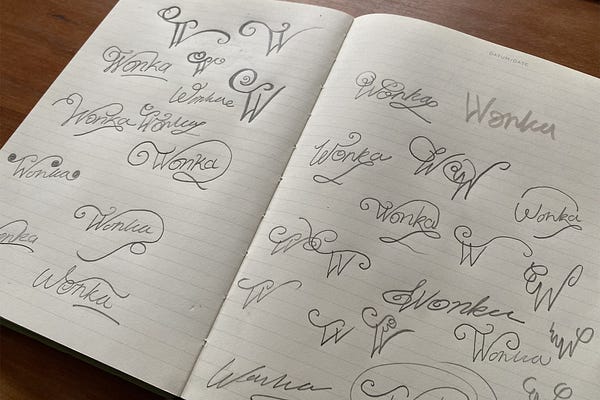 W W
Wonka W
Wonka W
Wonka Wonka
Wonka
Wonka
Wonka
Wonka
DATUM/DATE
Wonka Wonka
Wonka W W
Wonka Wonka
W W W
W Wonka
W W Wonka W
Wonka